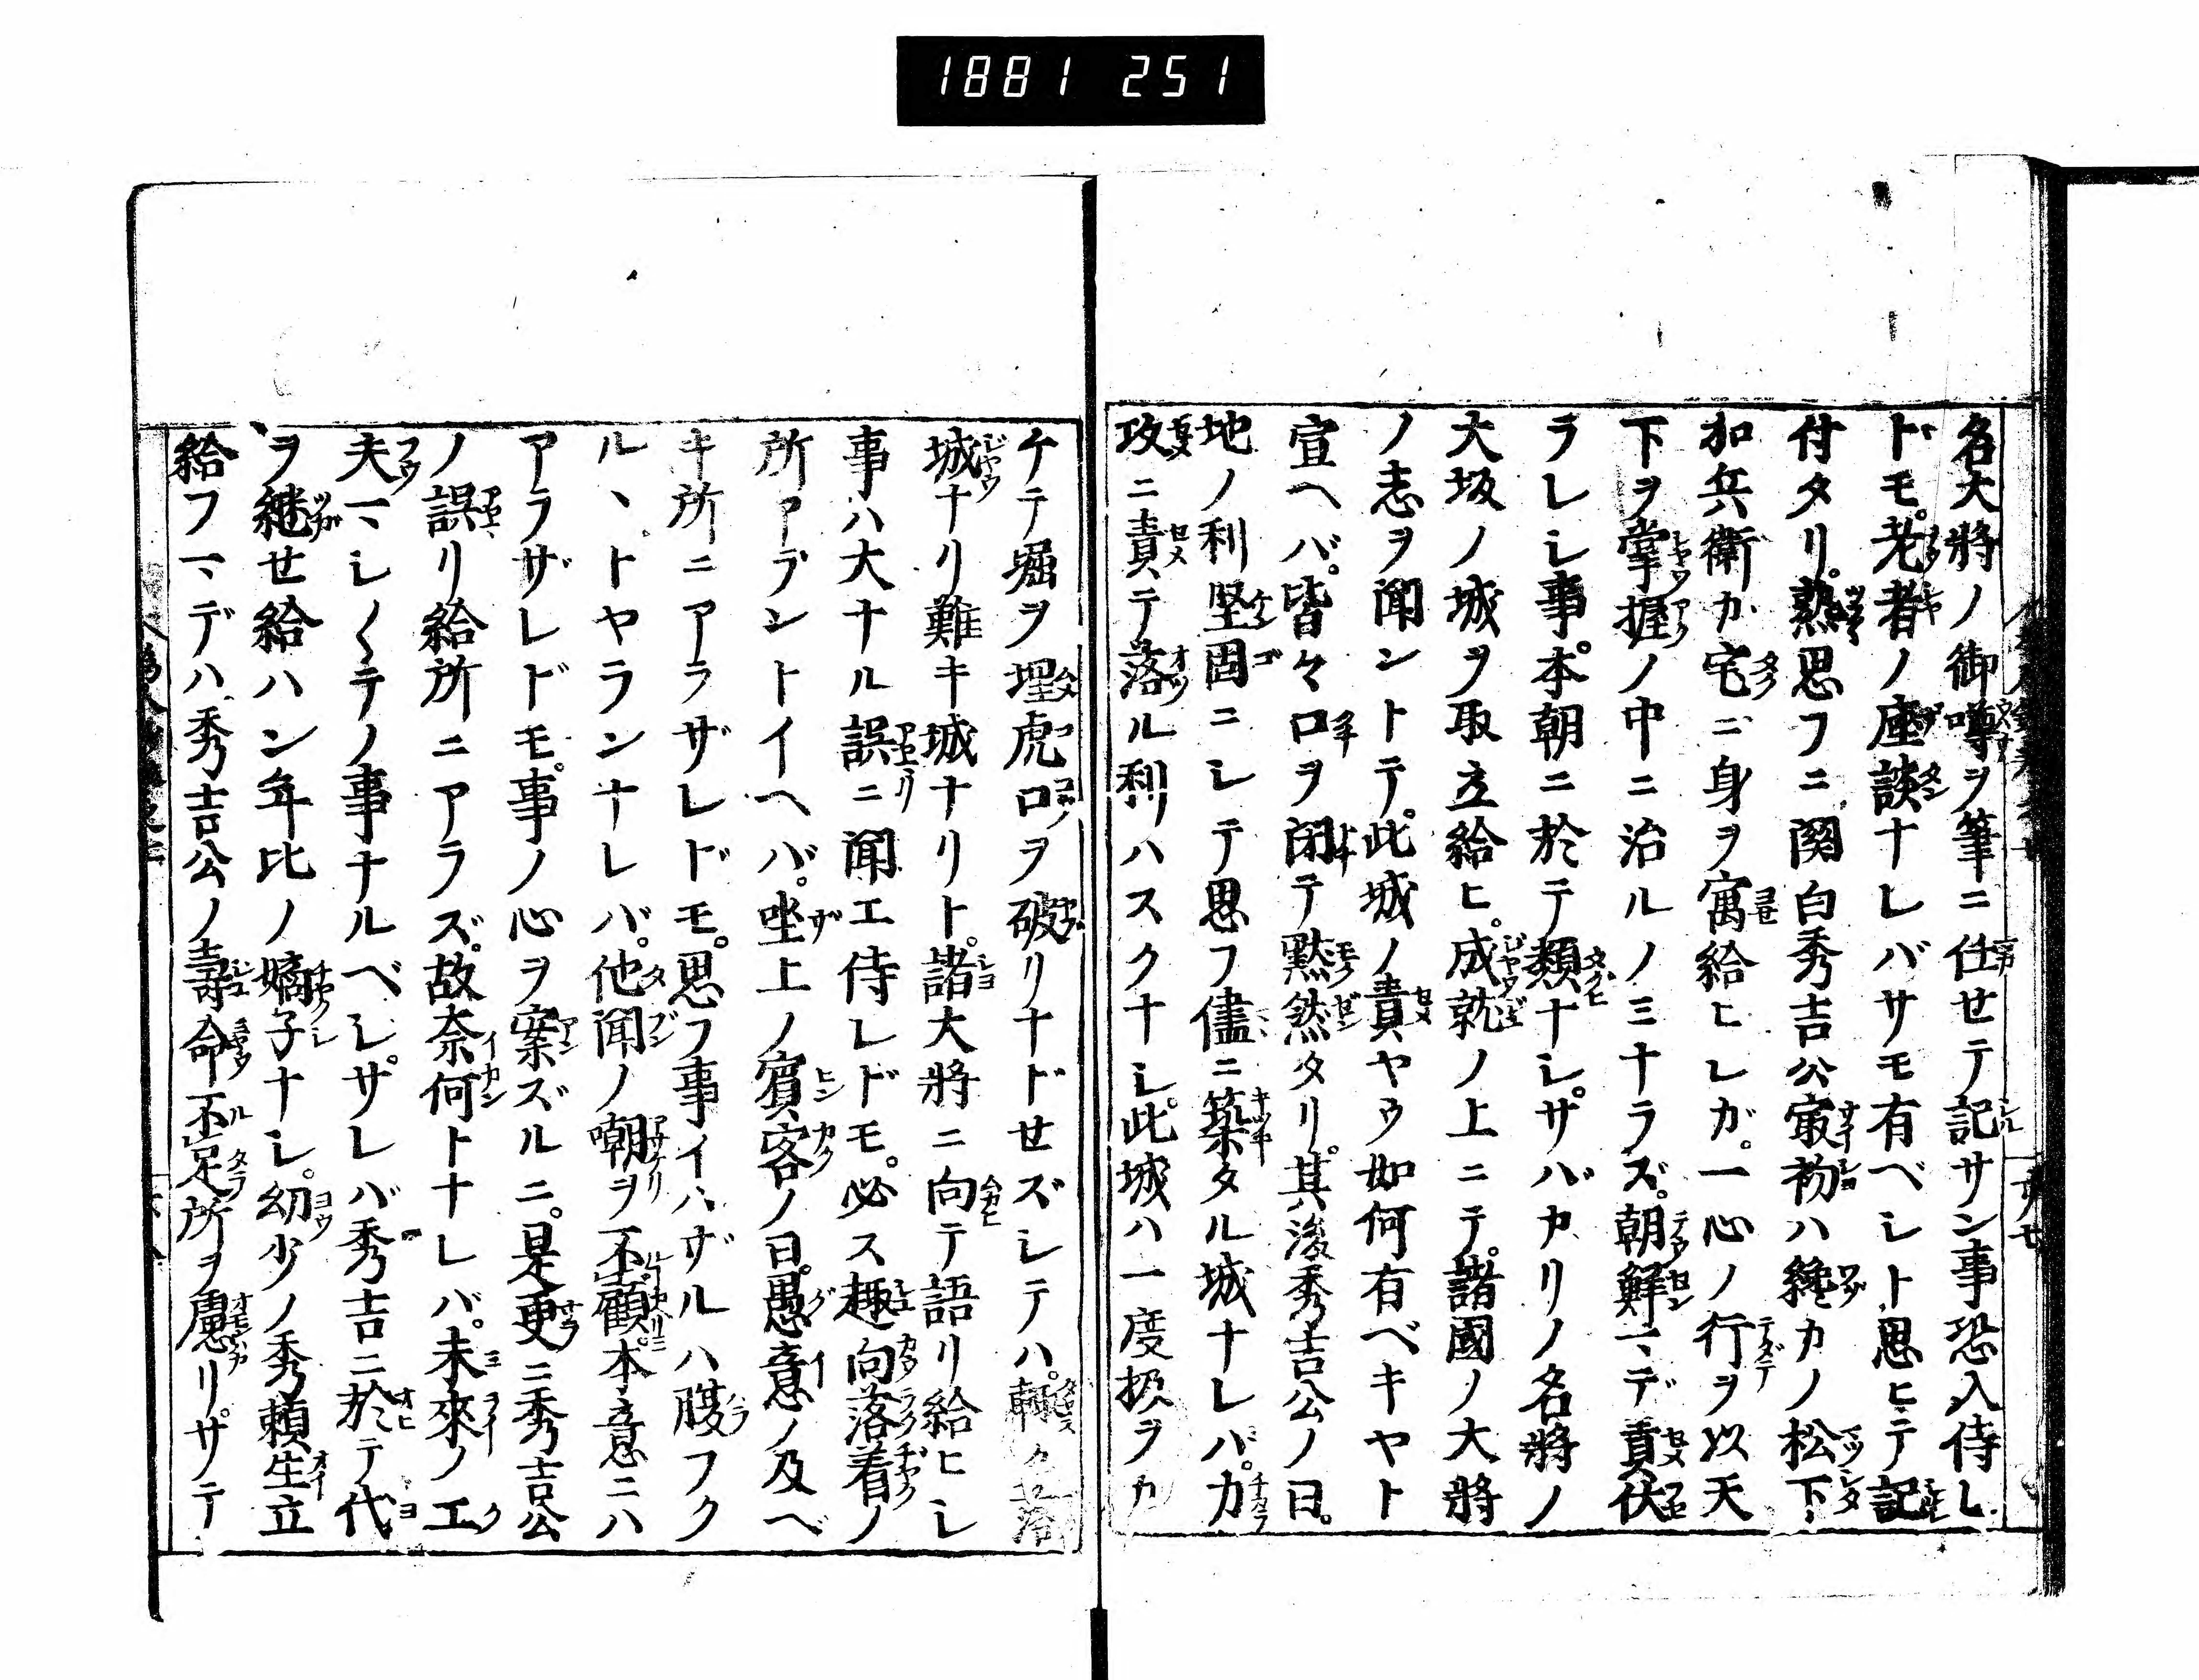 1881 251
名大將ノ御噂ヲ筆ニ仕セテ記サン事恐入侍レ
ドモ。老者ノ座談ナレバサモ有ベシト思ヒテ記
付タリ。熟思フニ関白秀吉公㝡初ハ纔カノ松下
加兵衛カ宅ニ身ヲ寓給ヒシガ。一心ノ行ヲ以天
下ヲ掌握ノ中ニ治ルノミナラズ。朝鮮マデ責伏
ラレシ事。本朝ニ於テ類ナシ。サバカリノ名將ノ
大坂ノ城ヲ取立給ヒ。成就ノ上ニテ。諸國ノ大將
ノ志ヲ聞ントテ。此城ノ責ヤウ如何有ベキヤト
宣ヘバ。皆々口ヲ閉テ黙然タリ。其後秀吉公ノ曰。
地ノ利堅固ニシテ思フ儘ニ築タル城ナレバ。力
攻ニ責テ落ル利ハスクナシ。此城ハ一度扱ヲカ
ケテ堀ヲ埋虎口ヲ破リナドセズシテハ。輙ク落
城ナリ難キ城ナリト。諸大將ニ向テ語リ給ヒシ
事ハ大ナル誤ニ聞エ侍レドモ。必ス趣向落着ノ
所アラントイヘバ。坐上ノ賓客ノ曰。愚意ノ及ベ
キ所ニアラザレドモ。思フ事イハザルハ腹フク
ルヽトヤランナレバ。他聞ノ嘲ヲ不顧。本意ニハ
アラザレドモ。事ノ心ヲ案ズルニ。是更ニ秀吉公
ノ誤リ給所ニアラズ。故奈何トナレバ。未來ノ工
夫マシ〱テノ事ナルベシ。サレバ秀吉ニ於テ代
ヲ継せ給ハン年比ノ嫡子ナシ。幼少ノ秀頼生立
給フマデハ。秀吉公ノ壽命不足所ヲ慮リ。サテ